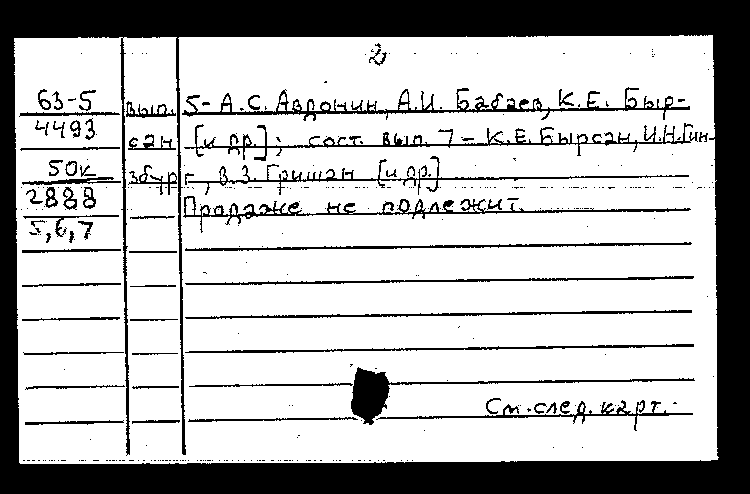 2
63-5 вып. 5- А.С. Авдонин, А.И. Бабаев, К.Е. Быр-
4493 сан [и др.]; сост. вып. 7 - К.Е. Бырсан, И.Н. Гин-
50к збург, В.З. Гришан [и др.]
2888 Продаже не подлежит.
5,6,7
См. след. карт.